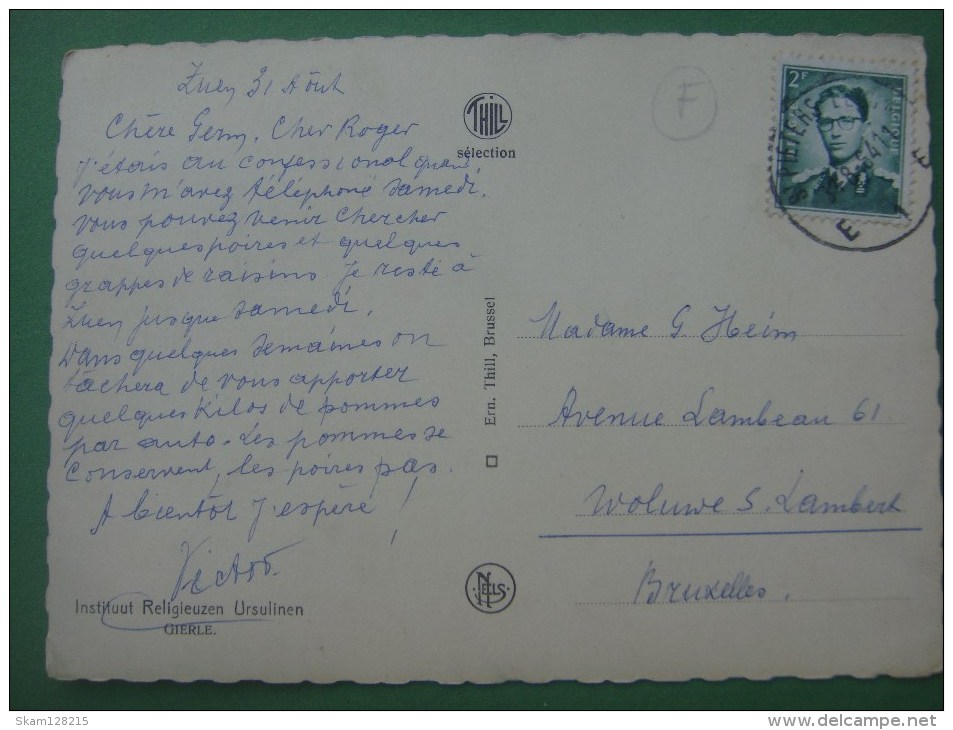 Zuen 31 Aôut
Chère Germ, Cher Roger
J'étais au confessional quand
vous m'avez téléphoné samedi.
Vous pouvez venir chercher
quelques poires et quelques
grappes de raisins. Je reste à
Zuen jusque samedi.
Dans quelques semaines on
tâchera de vous apporter
quelques Kilos de pommes
par auto. Les pommes se
conservent, les poires pas.
A bientôt j'espère !
Victor.
Instituut Religieuzen Ursulinen
GIERLE.
THILL
sélection
Ern. Thill, Brussel
NELS
F
2F
BELGIQUE
Madame G Heim
Avenue Lambeau 61
Woluwe S. Lambert
Bruxelles.
Skam128215
www.delcampe.net